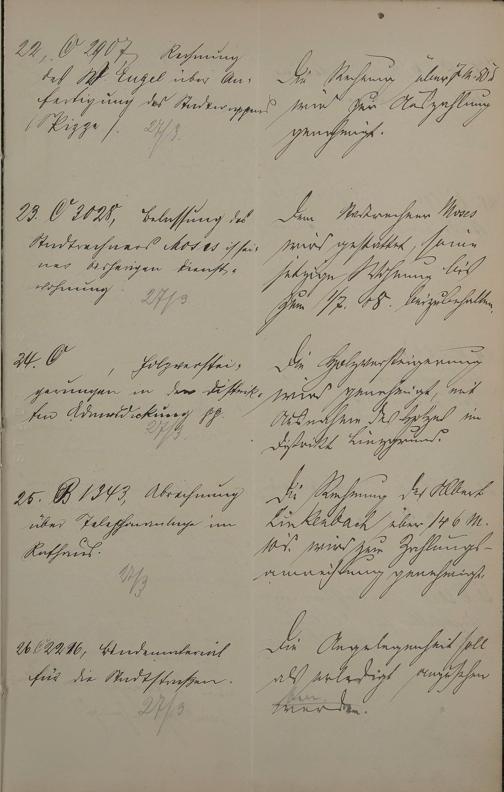 22, C 2907, Rechnung
des W. Engel über An-
fertigung des Stadtwappens
(Skizze).
27/3
Die Rechnung über
wird zur Auszahlung
genehmigt.
23. C 3028, Belassung des
Stadtrechners Moses in sei-
ner bisherigen Dienst-
wohnung
27/3
Dem Stadtrechner Moses
wird gestattet, seine
jetzige Wohnung bis
zum 1/7. 08. beizubehalten.
24. C , Holzverstei-
gerungen in den Distrik-
ten
27/3
Die Holzversteigerung
wird genehmigt, mit
Ausnahme des Holzes im
Distrikt
25. B 1343, Abrechnung
über Telephonanlage im
Rathaus.
27/3
Die Rechnung des Albert
Linkenbach über 146 M.
wird zur Zahlungs-
anweisung genehmigt.
26. C 2216, Bindematerial
für die Stadtstrassen.
27/3
Die Angelegenheit soll
als erledigt angesehen
werden.